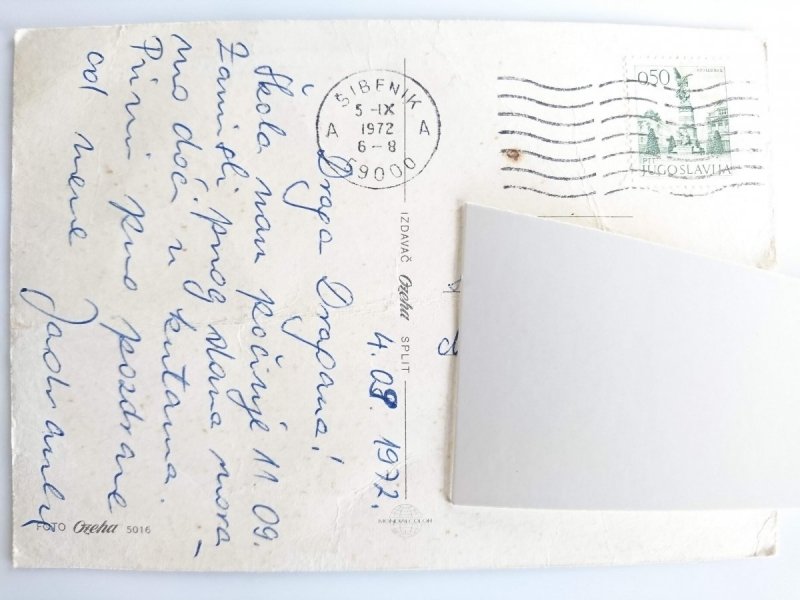 4.09.1972.
Draga Dragana!
Škola nam počinje 11.09.
Zamisli prvog dana mora-
mo doći u kutama.
Primi puno pozdrava
od mene Jadranke
ŠIBENIK
5-IX
1972
6-8
A A
59000
0,50
JUGOSLAVIJA
IZDAVAČ Ozeha SPLIT
MONDIALCOLOR
FOTO Ozeha 5016